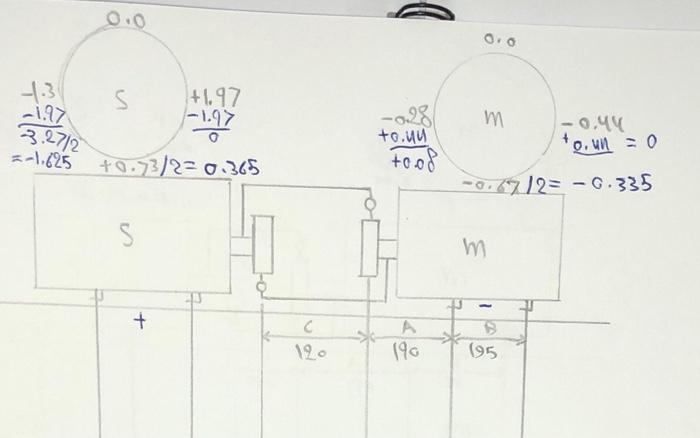 0.0
S
-1.3
-1.97
-3.27/2
=-1.625
+1.97
-1.97
0
+0.73/2= 0.365
0.0
m
-0.28
+0.44
+0.08
-0.44
+0.44 = 0
-0.67/2= -0.335
S
m
+
-
C
A
B
120
190
195